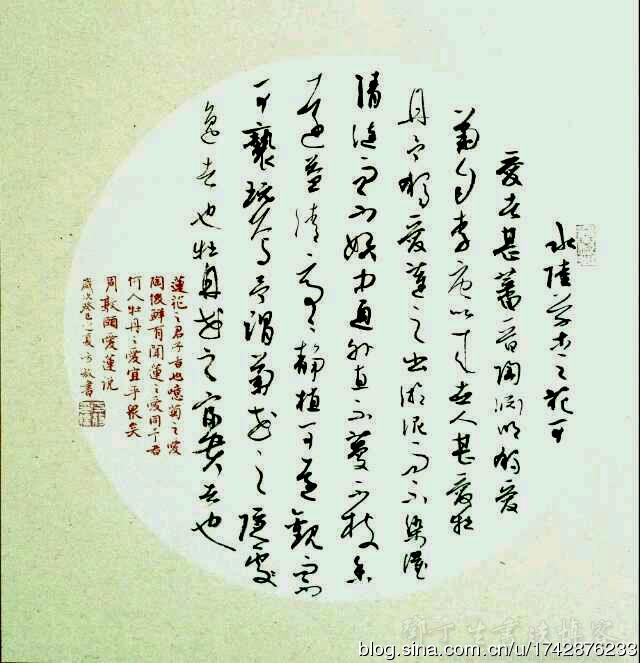 水陸草木之花可
愛者甚蕃晉陶淵明獨愛
菊自李唐以來世人甚愛牡
丹予獨愛蓮之出淤泥而不染濯
清漣而不妖中通外直不蔓不枝香
遠益清亭々靜植可遠觀而不
可褻玩焉予謂菊花之隱
逸者也牡丹花之富貴者也
蓮花之君子者也噫菊之愛
陶後鮮有聞蓮之愛同予者
何人牡丹之愛宜乎眾矣
周敦頤愛蓮說
歲次癸巳之夏書
丁生書法博客
blog.sina.com.cn/u/1742876233